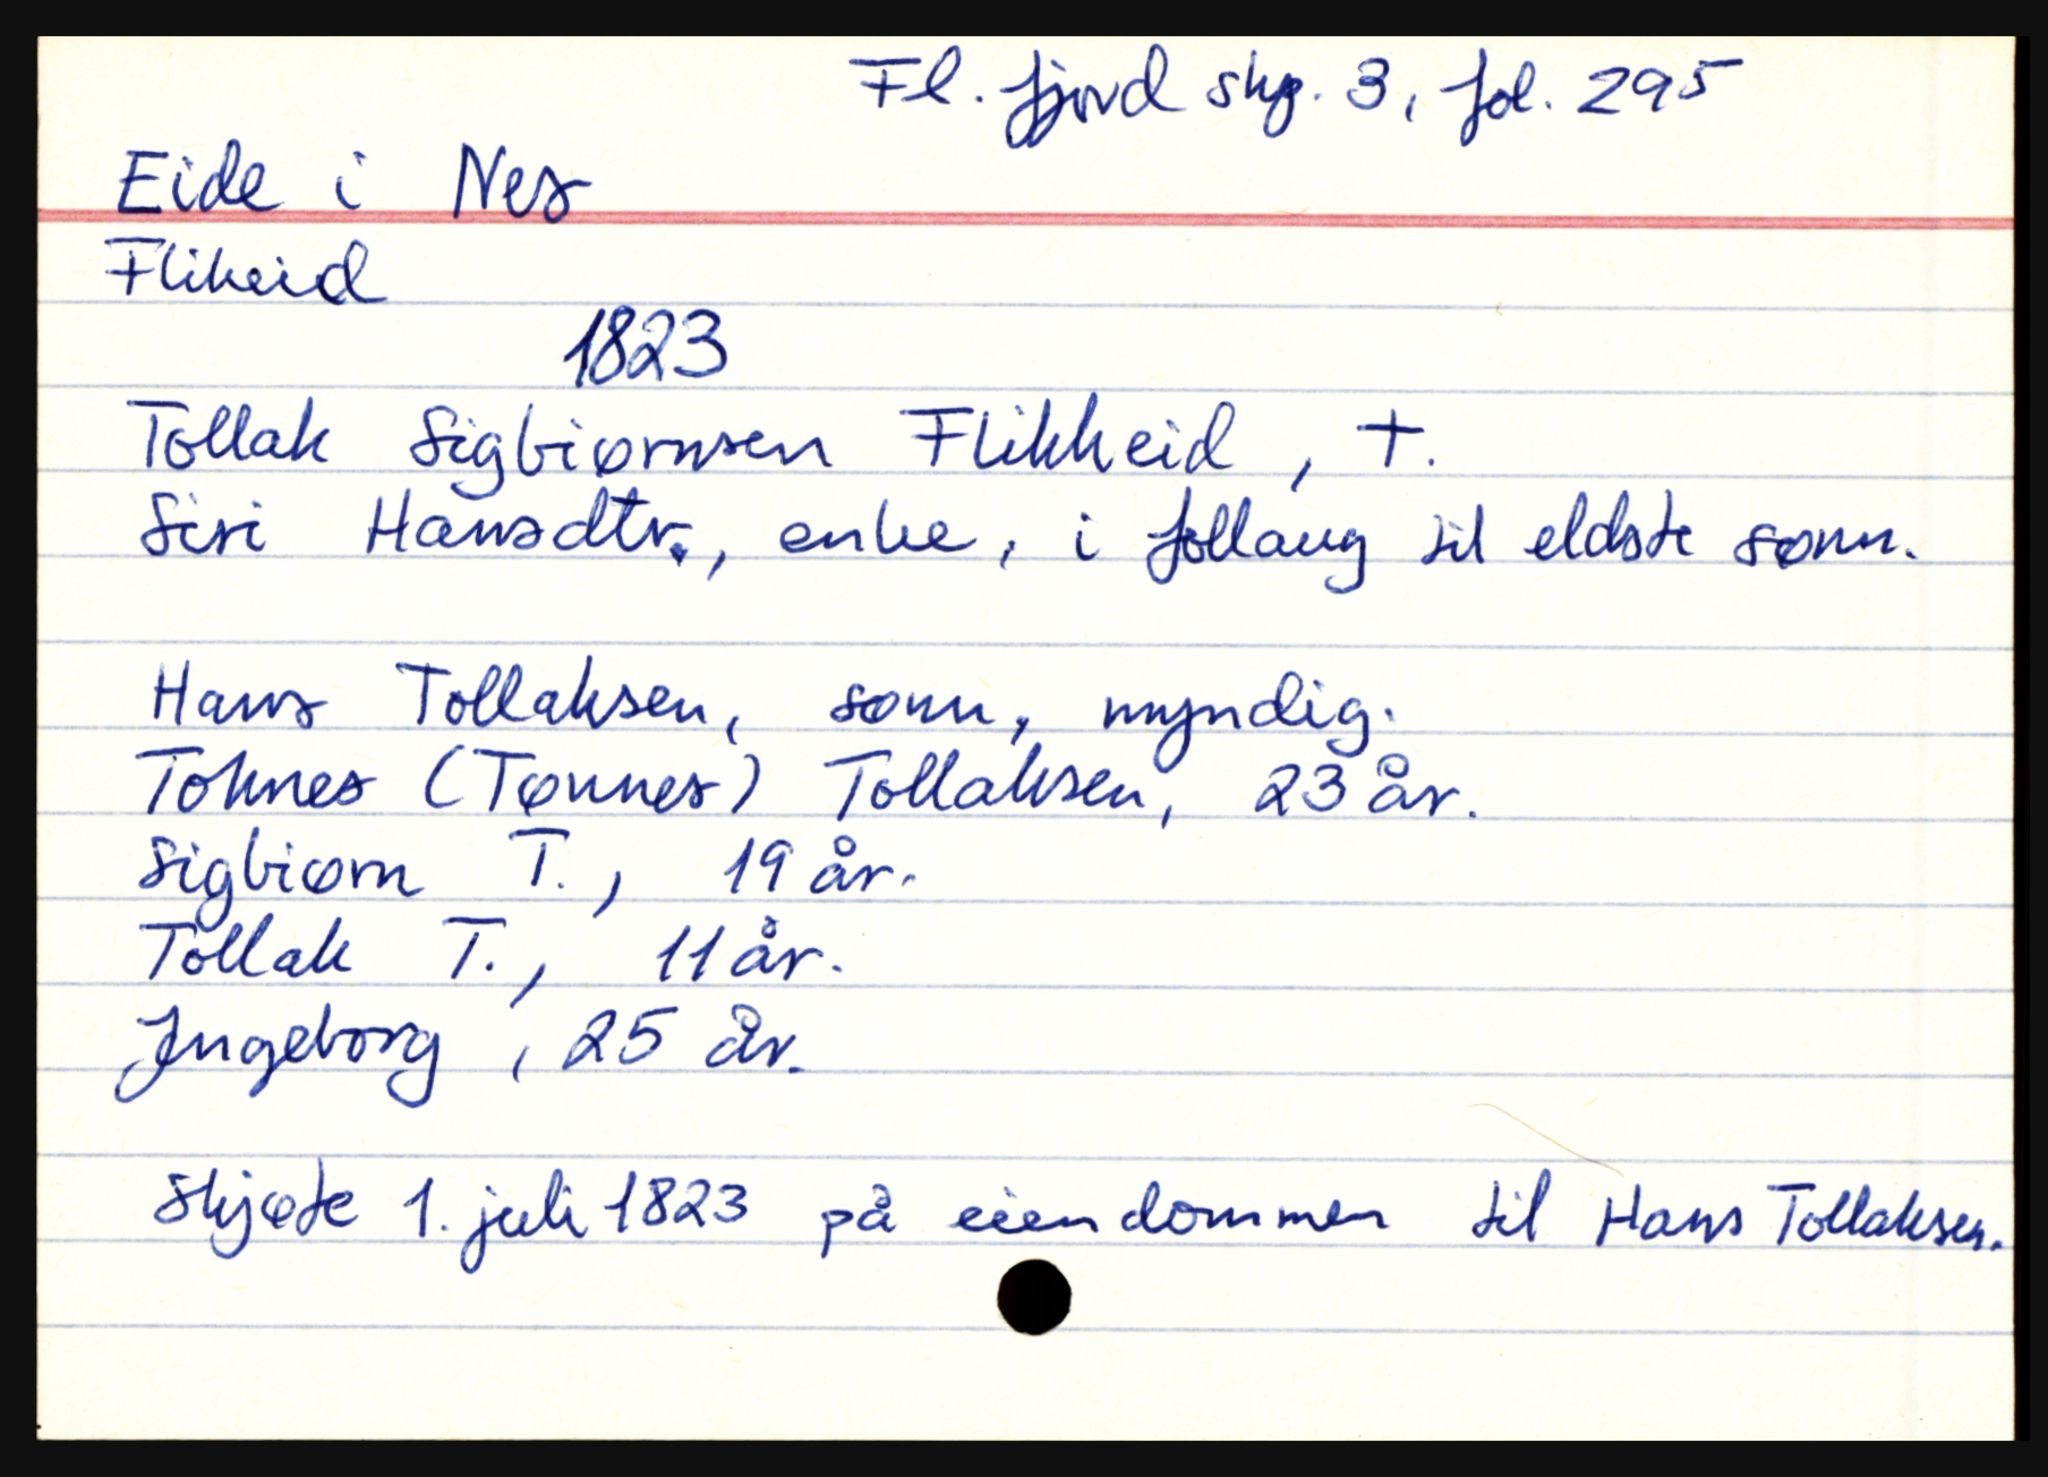 Fl. fjord skp. 3, fol. 295
Eide i Nes
Flikeid
1823
Tollak Sigbiørnsen Flikkeid, +.
Siri Hansdtr., enke, i follaug til eldste sønn.
Hans Tollaksen, sønn, myndig.
Tohnes (Tønnes) Tollaksen, 23 år.
Sigbiørn T., 19 år.
Tollak T., 11 år.
Ingeborg, 25 år.
Skjøte 1. juli 1823 på eiendommen til Hans Tollaksen.